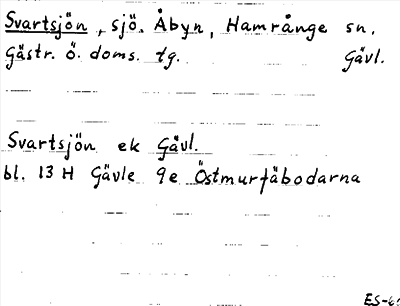 Svartsjön, sjö. Åbyn, Hamrånge sn.
Gästr. ö. doms. tg. Gävl.
Svartsjön ek Gävl.
bl. 13 H Gävle 9e Östmurfäbodarna